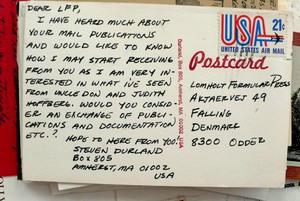 DEAR LFP,
I HAVE HEARD MUCH ABOUT
YOUR MAIL PUBLICATIONS
AND WOULD LIKE TO KNOW
HOW I MAY START RECEIVING
FROM YOU AS I AM VERY IN-
TERESTED IN WHAT I'VE SEEN
FROM UNCLE DON AND JUDITH
HOFFBERG. WOULD YOU CONSID-
ER AN EXCHANGE OF PUBLI-
CATIONS AND DOCUMENTATION
ETC.?
HOPE TO HERE FROM YOU.
STEVEN DURLAND
BOX 805
AMHERST, MA 01002
USA
Durland, Box 805, Amherst, MA 01002 U.S.A.
USA 21c
UNITED STATES AIR MAIL
Postcard
LOMHOLT FORMULAR PRESS
AKTAERVEJ 49
FALLING
DENMARK
8300 ODDER